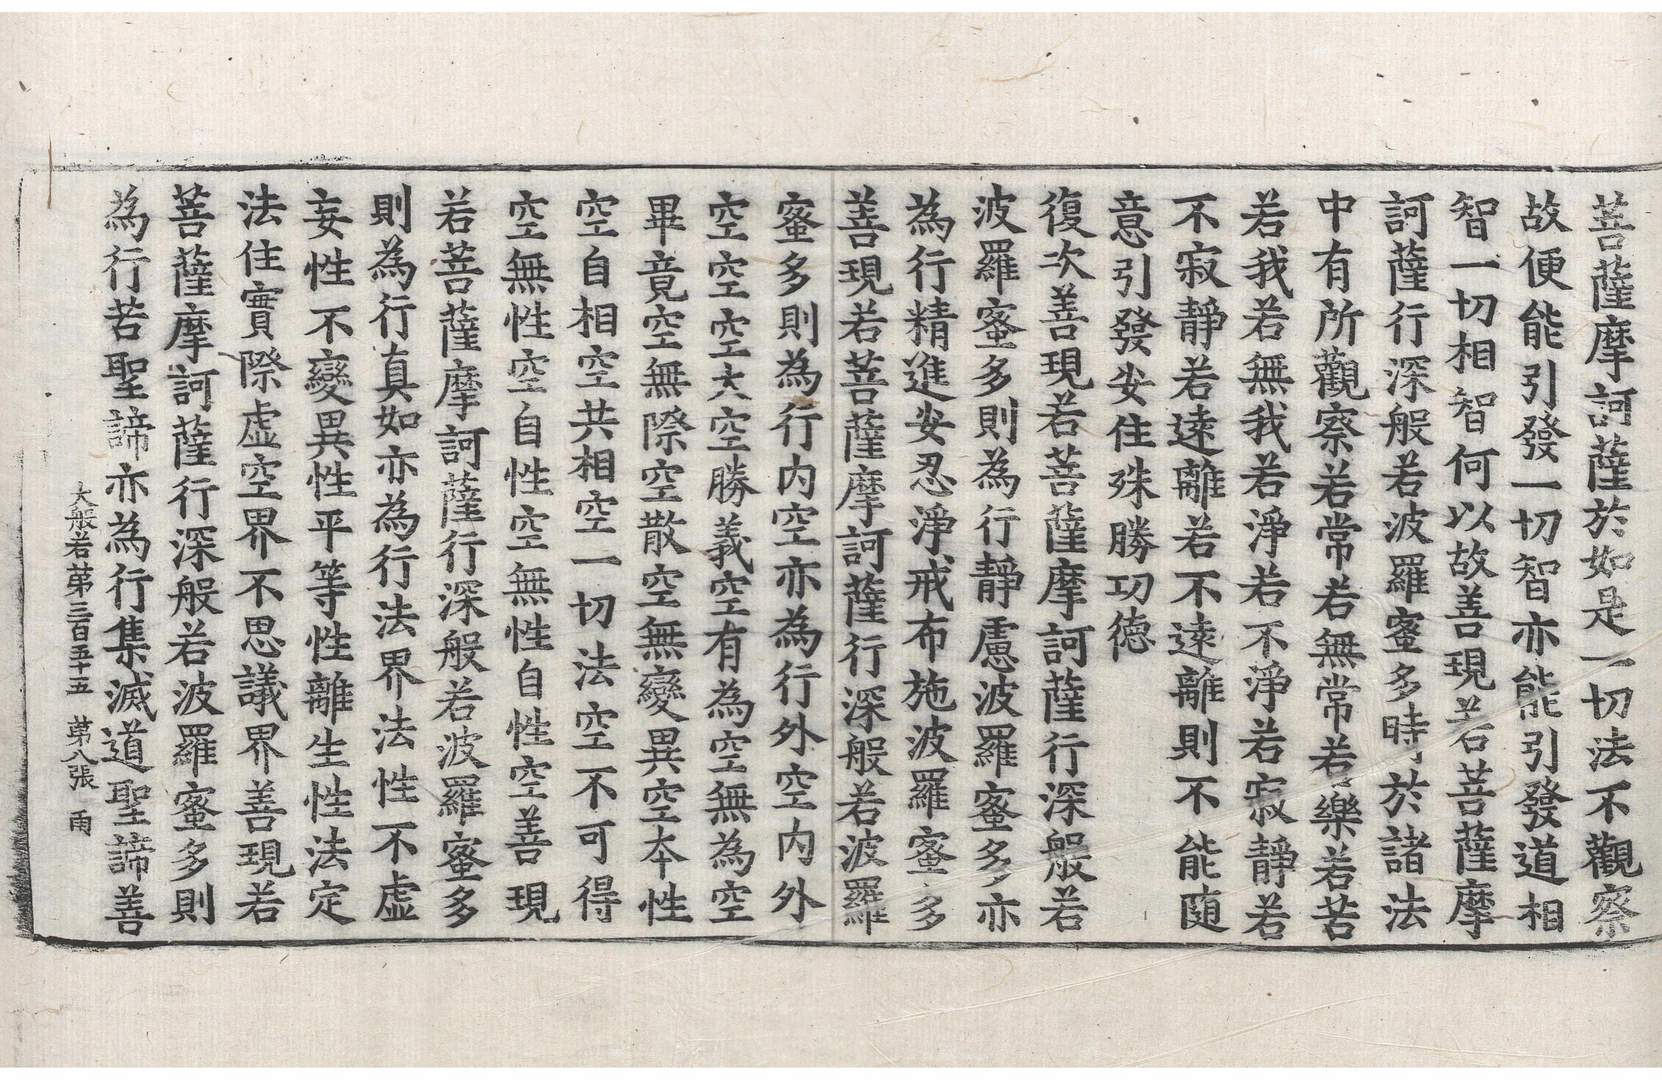 菩薩摩訶薩於如是一切法不觀察
故便能引發一切智亦能引發道相
智一切相智何以故善現若菩薩摩
訶薩行深般若波羅蜜多時於諸法
中有所觀察若常若無常若樂若苦
若我若無我若淨若不淨若寂靜若
不寂靜若遠離若不遠離則不能隨
意引發安住殊勝功德
復次善現若菩薩摩訶薩行深般若
波羅蜜多則為行靜慮波羅蜜多亦
為行精進安忍淨戒布施波羅蜜多
善現若菩薩摩訶薩行深般若波羅
蜜多則為行內空亦為行外空內外
空空空大空勝義空有為空無為空
畢竟空無際空散空無變異空本性
空自相空共相空一切法空不可得
空無性空自性空無性自性空善現
若菩薩摩訶薩行深般若波羅蜜多
則為行真如亦為行法界法性不虛
妄性不變異性平等性離生性法定
法住實際虛空界不思議界善現若
菩薩摩訶薩行深般若波羅蜜多則
為行苦聖諦亦為行集滅道聖諦善
大般若第三百五十五 第八張 雨